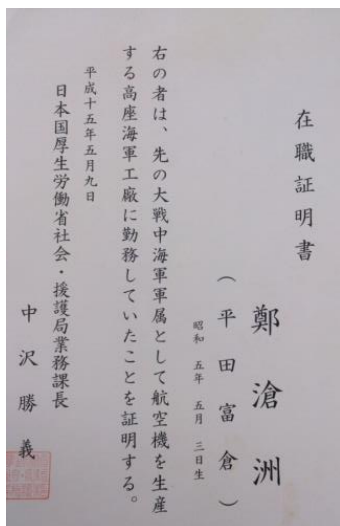 在職証明書
鄭滄洲
（平田富倉）
昭和 五年 五月 三日生
右の者は、先の大戦中海軍軍属として航空機を生産
する高座海軍工廠に勤務していたことを証明する。
平成十五年五月九日
日本国厚生労働省社会・援護局業務課長
中沢勝義